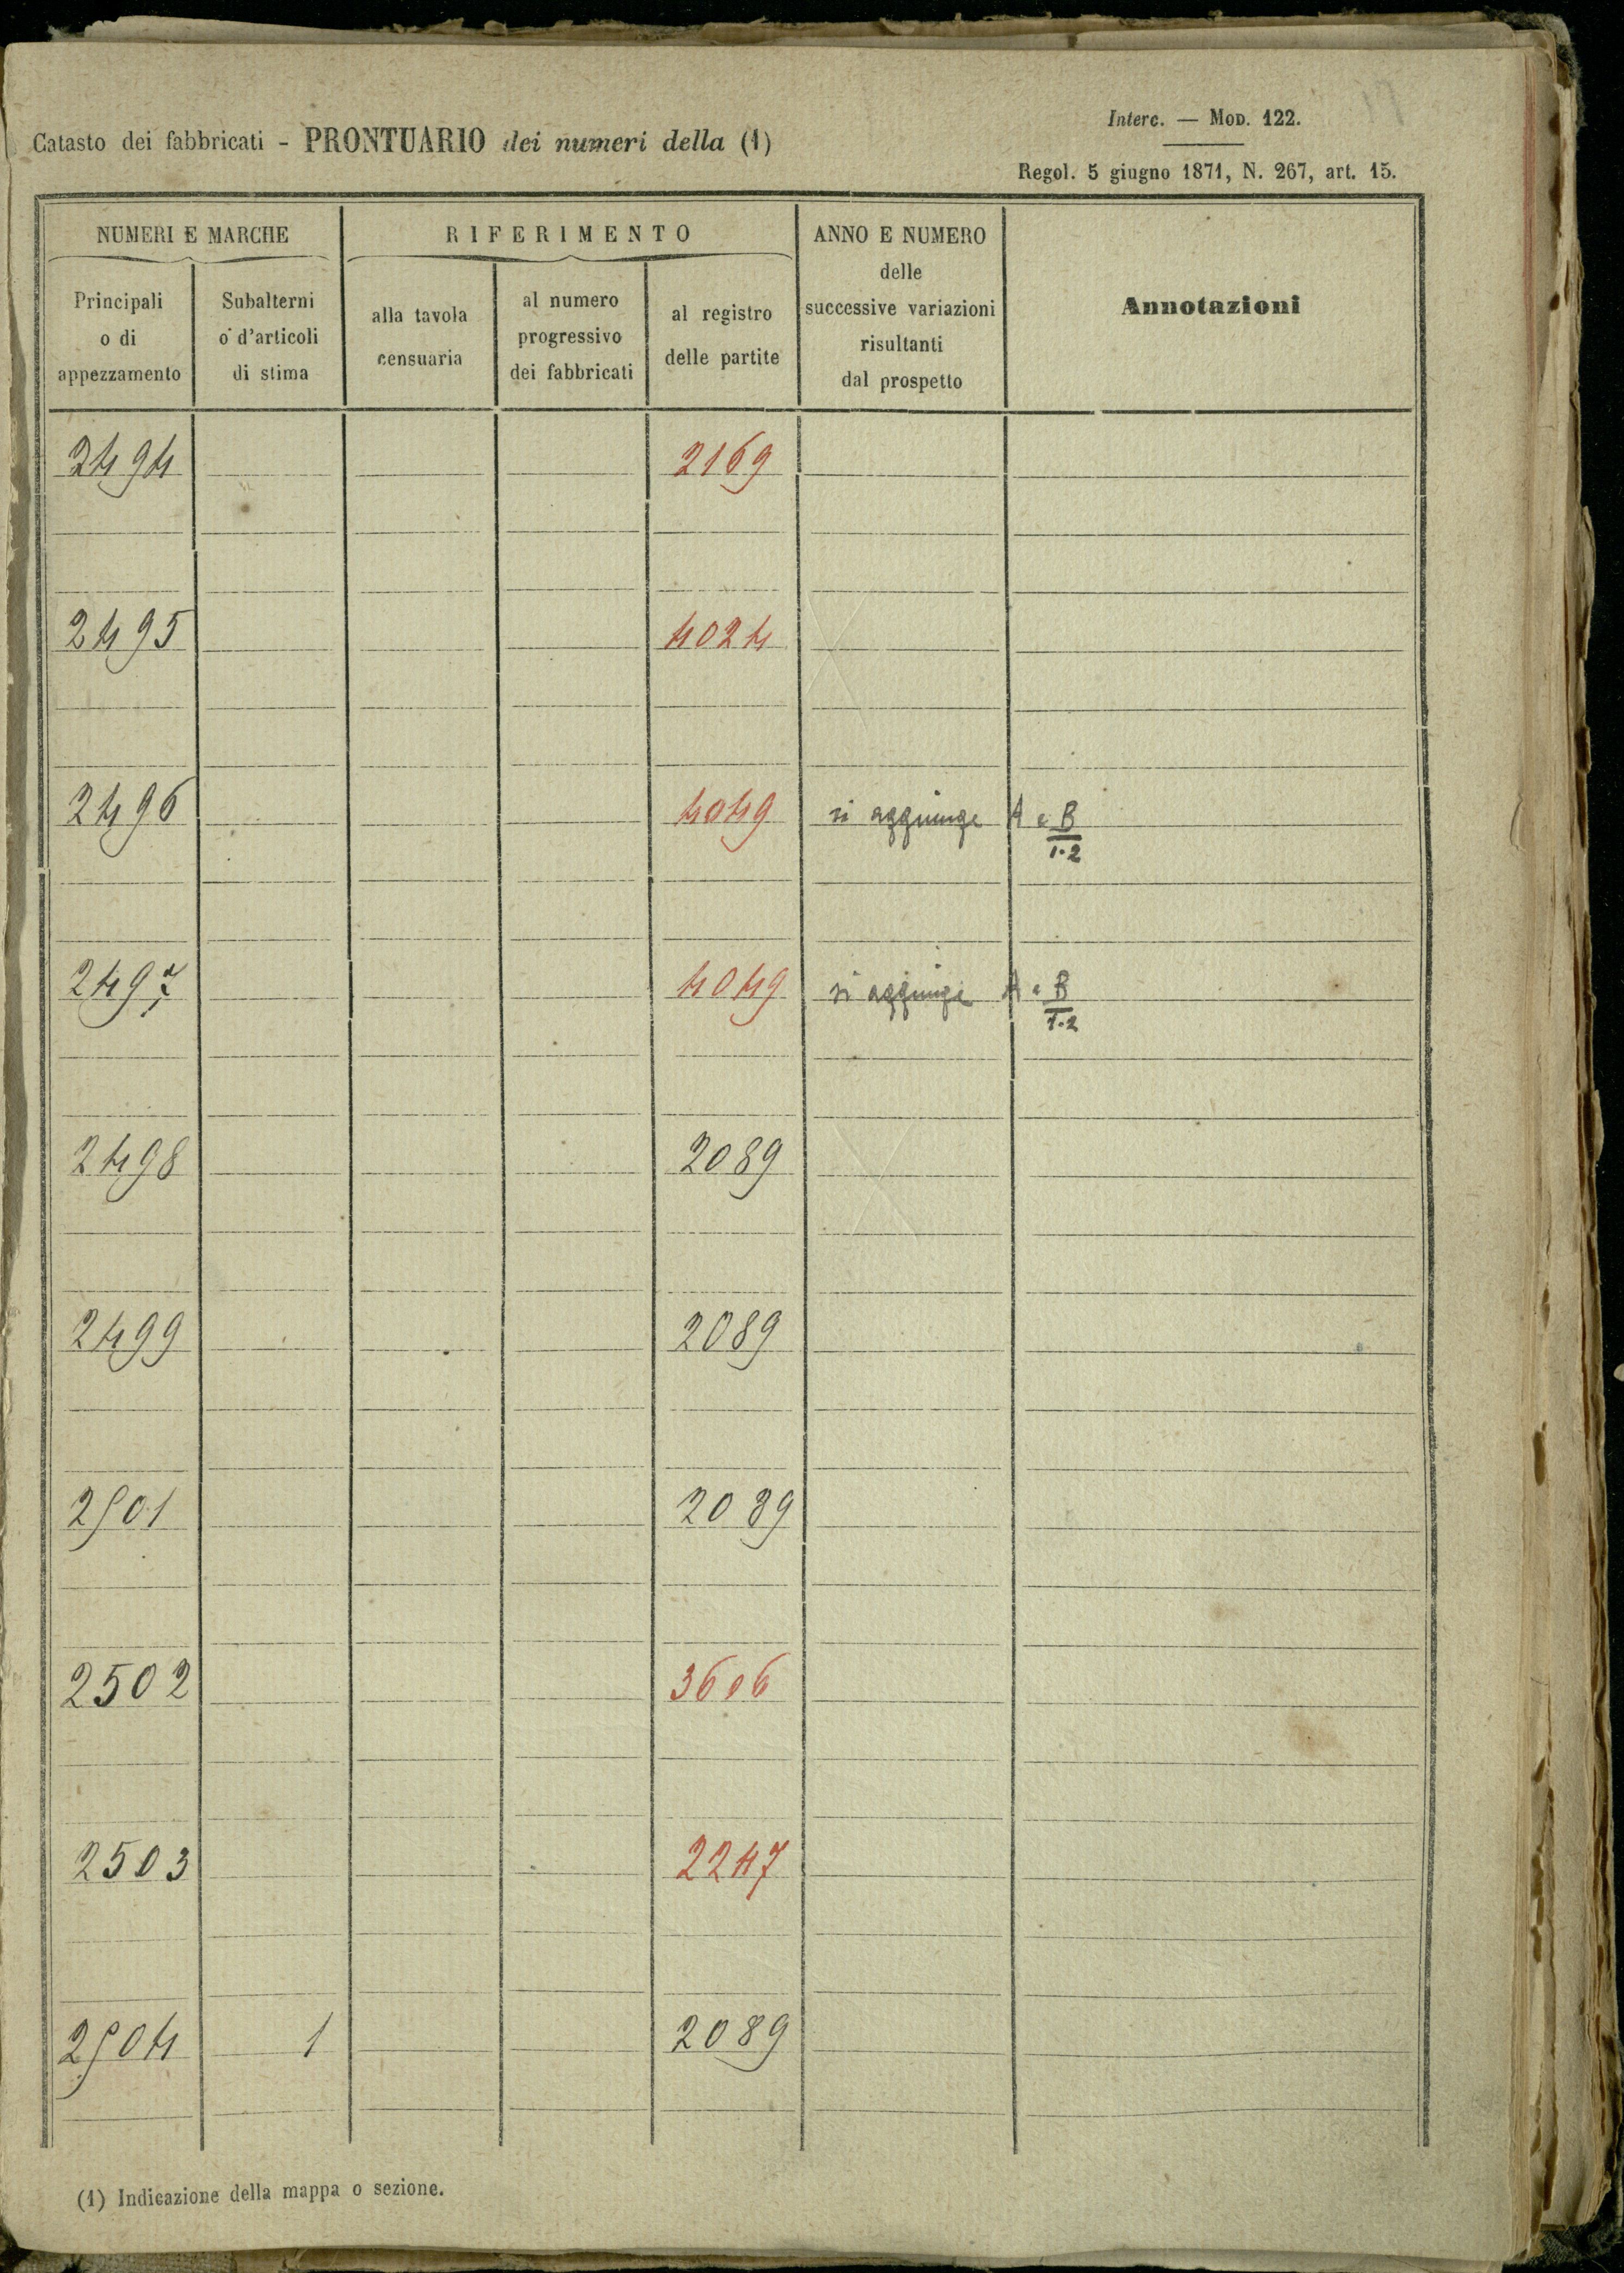 Interc. — Mod. 122.
Catasto dei fabbricati - PRONTUARIO dei numeri della (1)
Regol. 5 giugno 1871, N. 267, art. 15.
NUMERI E MARCHE
RIFERIMENTO
ANNO E NUMERO
delle
successive variazioni
risultanti
dal prospetto
Annotazioni
Principali
o di
appezzamento
Subalterni
o d'articoli
di stima
alla tavola
censuaria
al numero
progressivo
dei fabbricati
al registro
delle partite
2494 2169
2495 4024
2496 4049 si aggiunge A e B
1.2
2497 4049 si aggiunge A e B
1.2
2498 2089
2499 2089
2501 2089
2502 3606
2503 2247
2504 1 2089
(1) Indicazione della mappa o sezione.